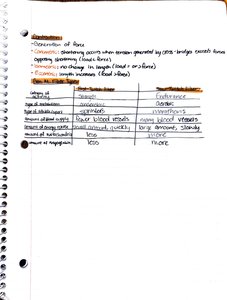 Contraction:
-Generation of force
• Concentric: shortening occurs when tension generated by cross-bridges exceeds forces
opposing shortening (load < force)
• Isometric: no change in length (load = or > force)
• Eccentric: length increases (load > force)
Fiber Types
Fast Twitch Fiber Slow Twitch Fiber
Category of activity strength Endurance
Type of metabolism anaerobic Aerobic
Type of athlete/sport sprinters marathons
Amount of blood supply fewer blood vessels many blood vessels
Amount of energy supplied small amount, quickly large amount, slowly
Amount of mitochondria less more
Amount of myoglobin less more